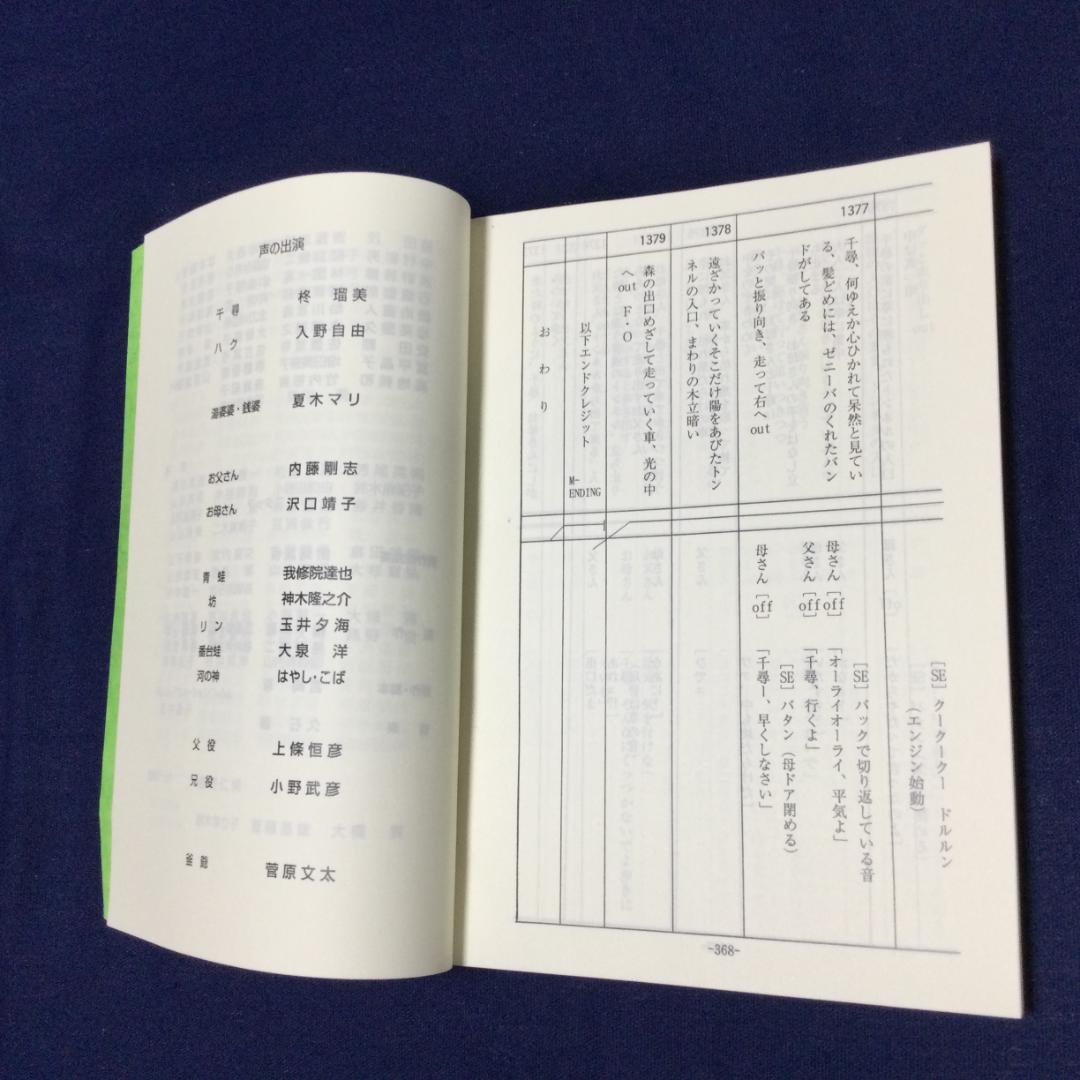 声の出演
千尋 柊 瑠美
ハク 入野自由
湯婆婆・銭婆 夏木マリ
お父さん 内藤剛志
お母さん 沢口靖子
青蛙 我修院達也
坊 神木隆之介
リン 玉井夕海
番台蛙 大泉 洋
河の神 はやし・こば
父役 上條恒彦
兄役 小野武彦
釜爺 菅原文太
[SE] クークークー ドルルン
(エンジン始動)
1377
千尋、何ゆえか心ひかれて呆然と見てい
る、髪どめには、ゼニーバのくれたバン
ドがしてある
パッと振り向き、走って右へout
[SE] バックで切り返している音
母さん [off] 「オーライオーライ、平気よ」
父さん [off] 「千尋、行くよ」
[SE] バタン (母ドア閉める)
母さん [off] 「千尋ー、早くしなさい」
1378
遠ざかっていくそこだけ陽をあびたトン
ネルの入口、まわりの木立暗い
1379
森の出口めざして走っていく車、光の中
へout F・O
以下エンドクレジット
M-
ENDING
おわり
-368-